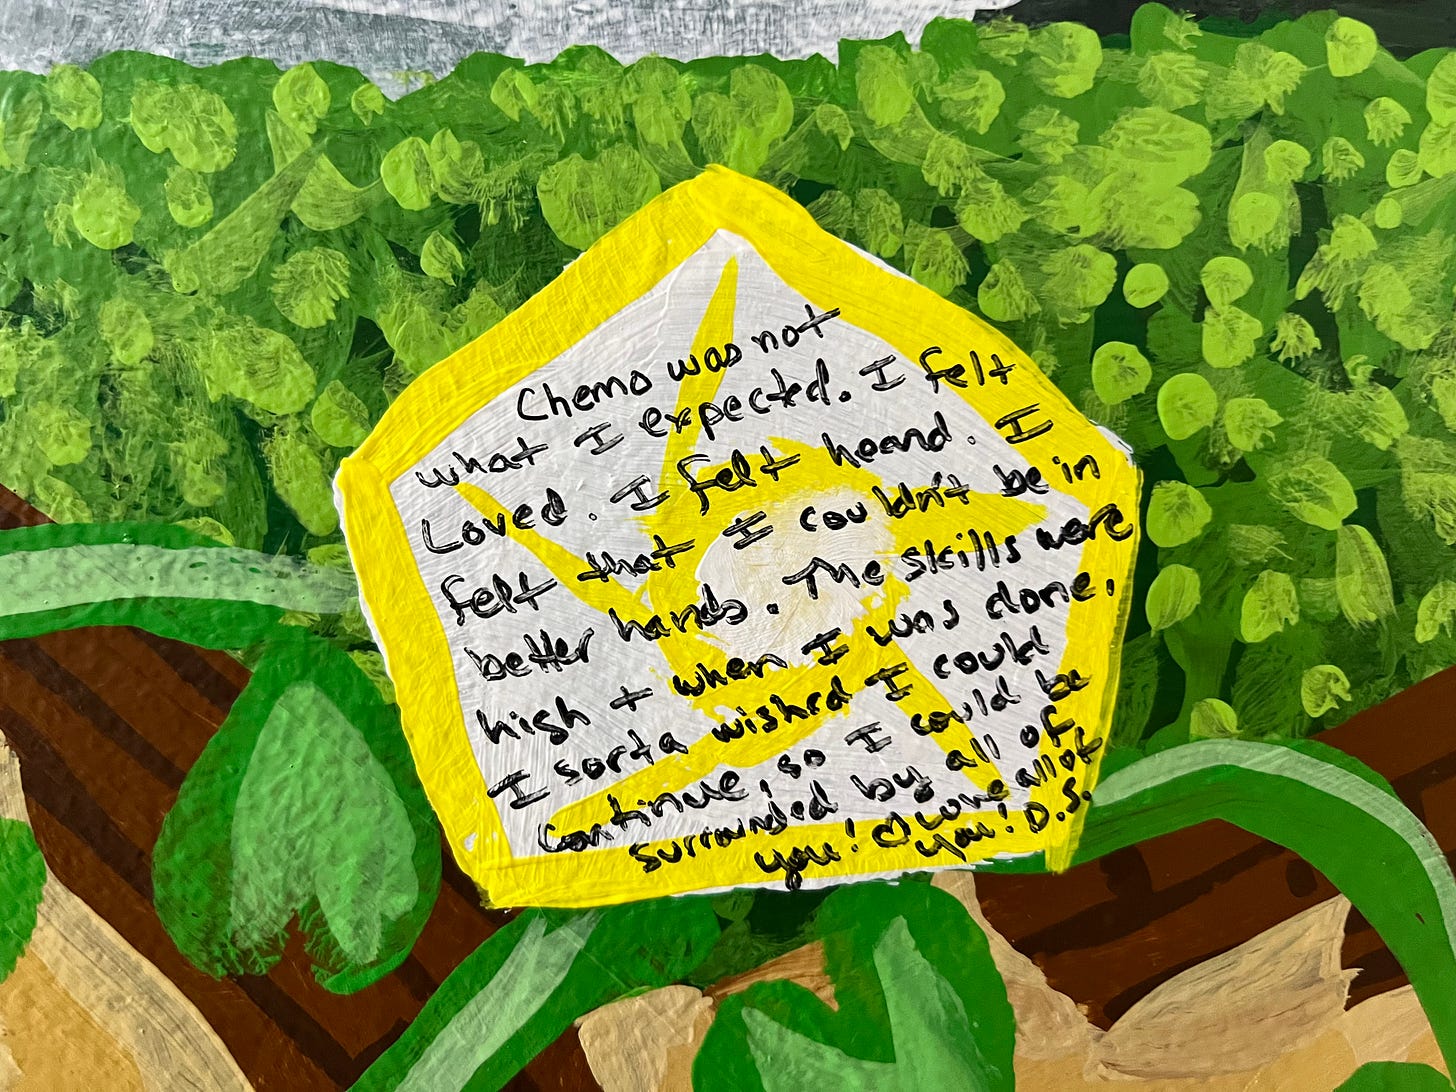 Chemo was not
what I expected. I felt
Loved. I felt heard. I
felt that I couldn't be in
better hands. The skills were
high + when I was done,
I sorta wished I could
continue, so I could be
surrounded by all of
you! ♡ Love all of
you! D.S.